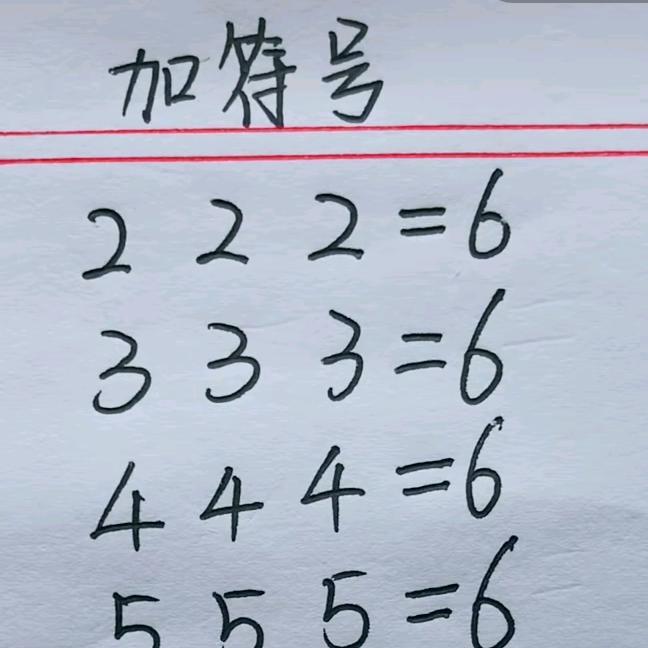 加符号
2 2 2=6
3 3 3=6
4 4 4=6
5 5 5=6